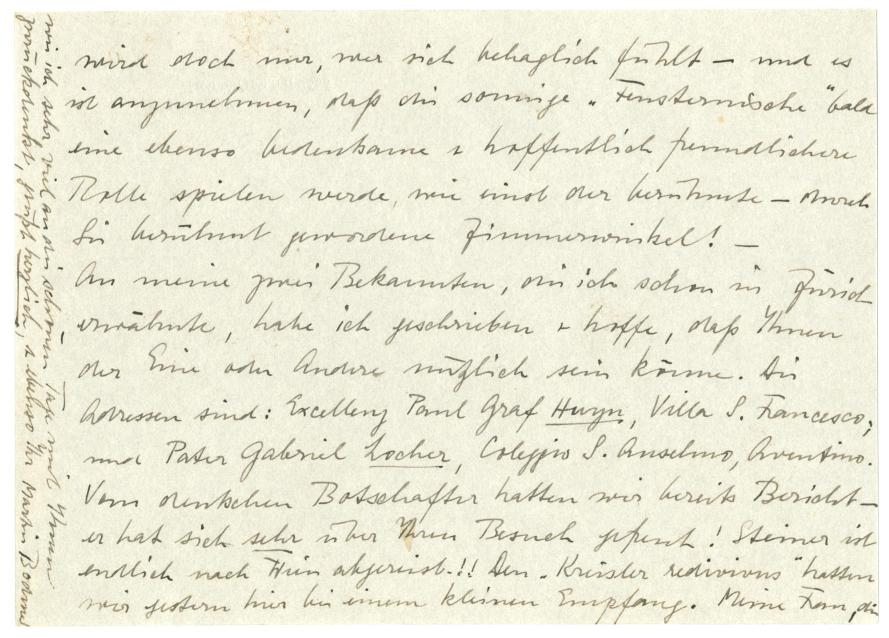 wird doch nur, wer sich behaglich fühlt – und es
ist anzunehmen, daß die sonnige „Fensternische" bald
eine ebenso bedeutsame + hoffentlich freundlichere
Rolle spielen werde, wie einst der berühmte – durch
Sie berühmt gewordene Zimmerwinkel! –
An meine zwei Bekannten, die ich schon in Zürich
erwähnte, habe ich geschrieben + hoffe, daß Ihnen
der Eine oder Andere nützlich sein könne. Die
Adressen sind: Excellenz Paul Graf Huyn, Villa S. Francesco,
und Pater Gabriel Locher, Coleggio S. Anselmo, Aventino.
Vom deutschen Botschafter hatten wir bereits Bericht –
er hat sich sehr über Ihren Besuch gefreut! Steiner ist
endlich nach Wien abgereist.!! Den „Kreisler redivivus" hatten
wir gestern hier bei einem kleinen Empfang. Meine Frau, die
wie ich sehr viel an die schönen Tage mit Ihnen
zurückdenkt, grüßt herzlich, + ebenso Ihr Martin Bodmer